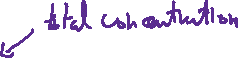 total concentration